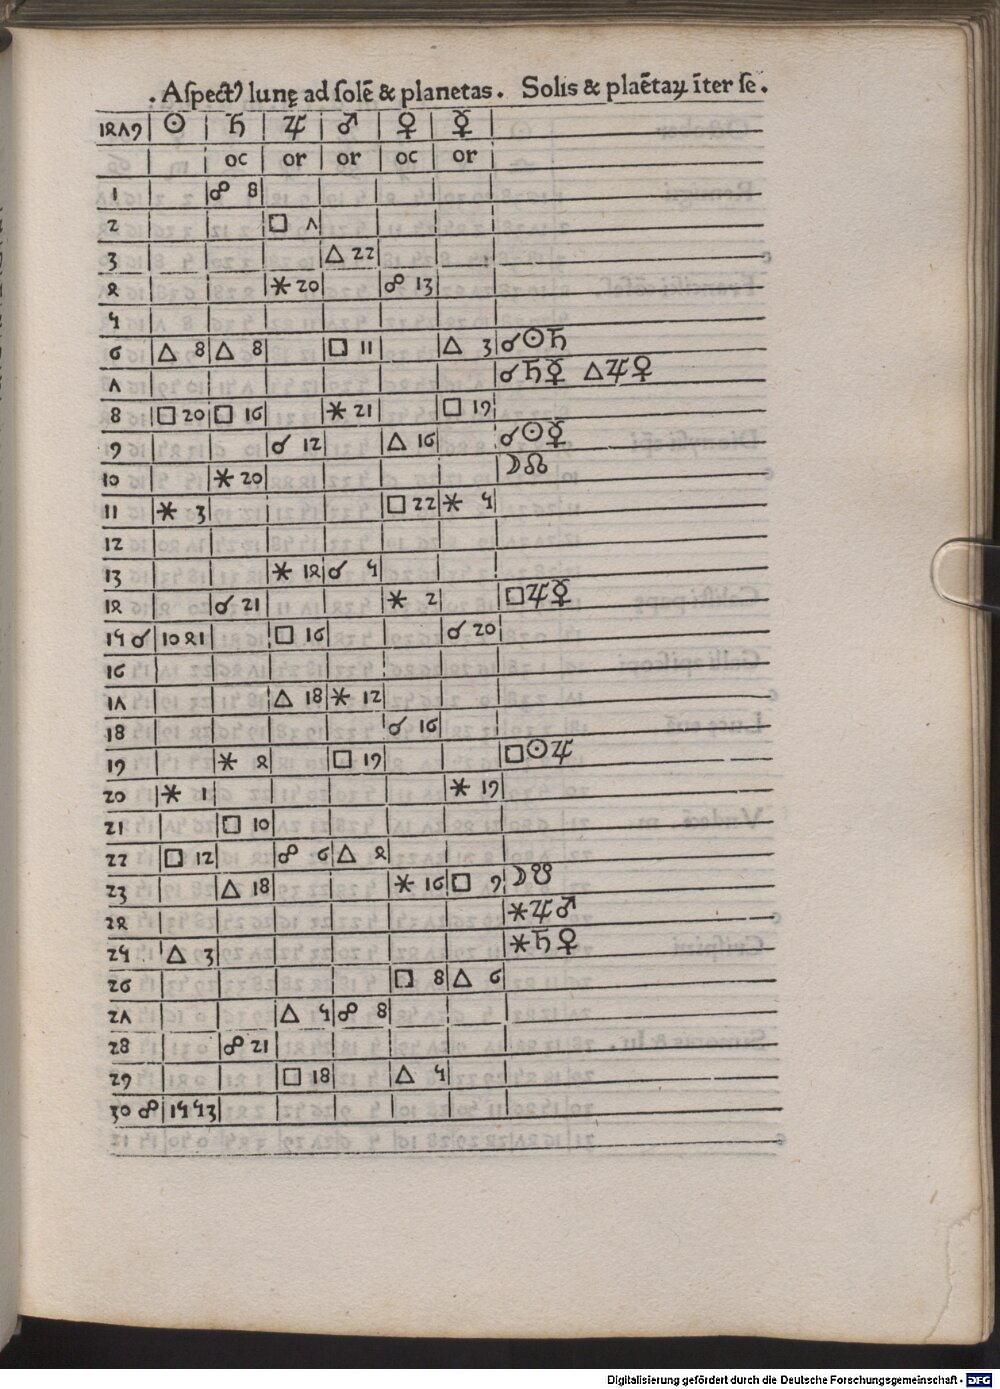 . Aſpectꝰ lunę ad ſolē & planetas . Solis & plaētaꝝ īter ſe .
1479 ☉ ♄ ♃ ♂ ♀ ☿
oc or or oc or
1 ☍ 8
2 □ 7
3 △ 22
4 ⚹ 20 ☍ 13
5
6 △ 8 △ 8 □ 11 △ 3 ☌☉♄
7 ☌♄☿ △♃♀
8 □ 20 □ 16 ⚹ 21 □ 19
9 ☌ 12 △ 16 ☌☉☿
10 ⚹ 20 ☽☊
11 ⚹ 3 □ 22 ⚹ 5
12
13 ⚹ 14 ☌ 5
14 ☌ 21 ⚹ 2 □♃☿
15 ☌ 10 41 □ 16 ☌ 20
16
17 △ 18 ⚹ 12
18 ☌ 16
19 ⚹ 4 □ 19 □☉♃
20 ⚹ 1 ⚹ 19
21 □ 10
22 □ 12 ☍ 6 △ 4
23 △ 18 ⚹ 16 □ 9 ☽☋
24 ⚹♃♂
25 △ 3 ⚹♄♀
26 □ 8 △ 6
27 △ 5 ☍ 8
28 ☍ 21
29 □ 18 △ 5
30 ☍ 15 53
Digitalisierung gefördert durch die Deutsche Forschungsgemeinschaft - DFG